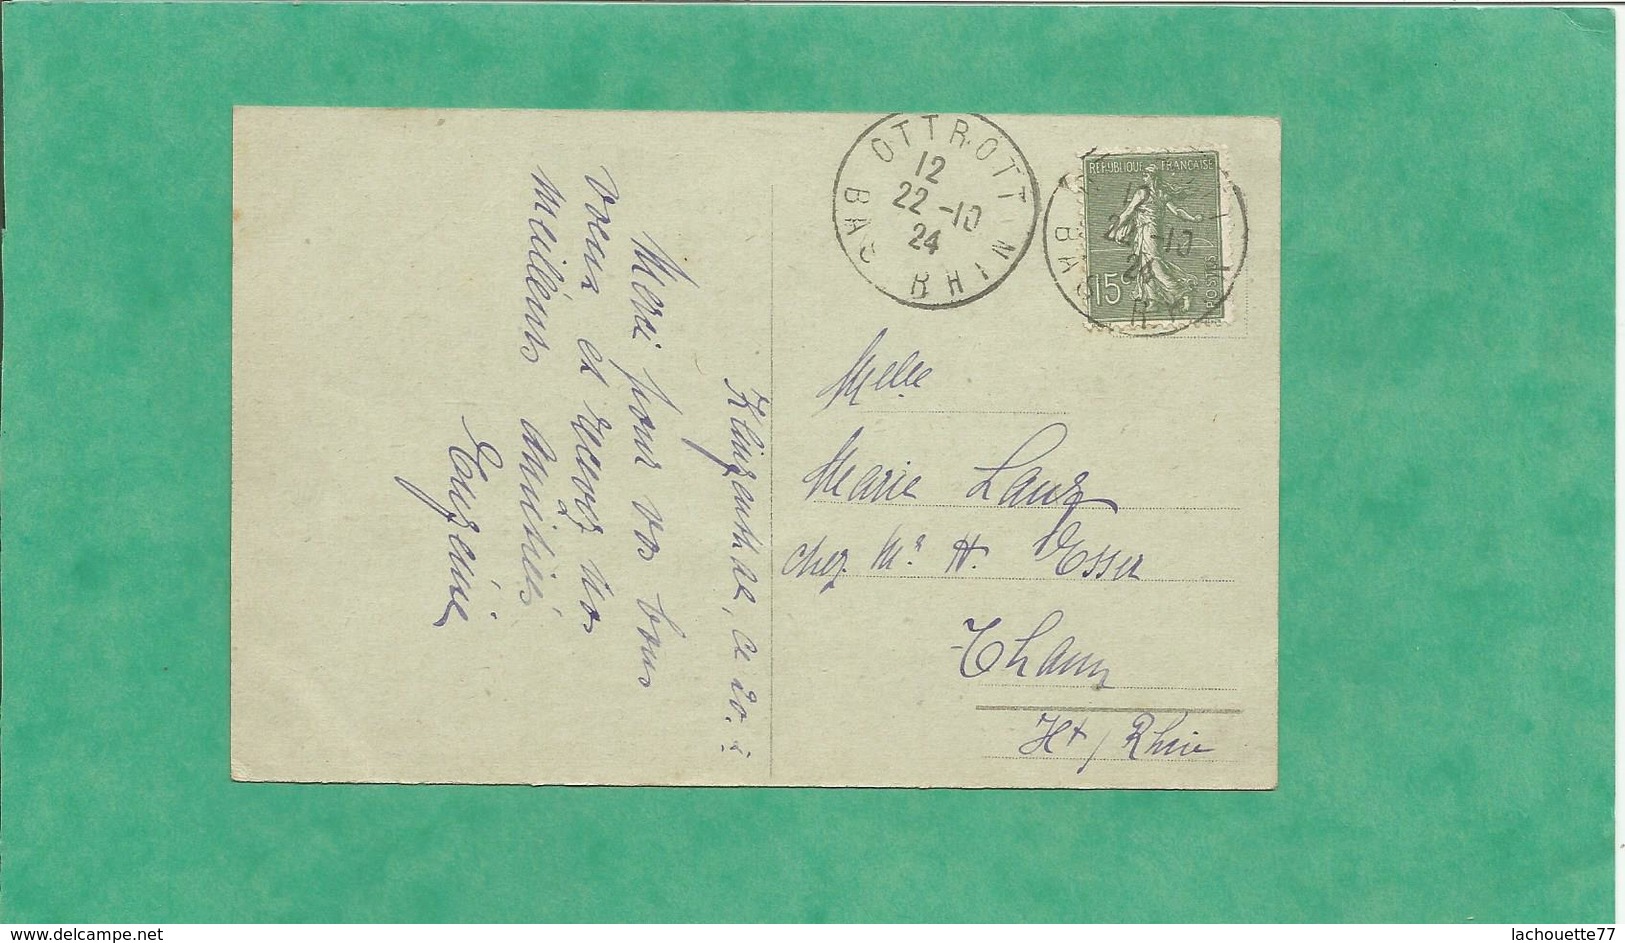 Klingenthal, ce 20.
Merci pour vos bons
voeux et recevez nos
meilleurs amitiés
Eugénie
OTTROTT
12
22-10
24
BAS RHIN
REPUBLIQUE FRANÇAISE
15c
POSTES
12
22-10
24
BAS
Melle
Marie Lanz
chez Mr H. Esser
Thann
Ht / Rhin
www.delcampe.net
lachouette77